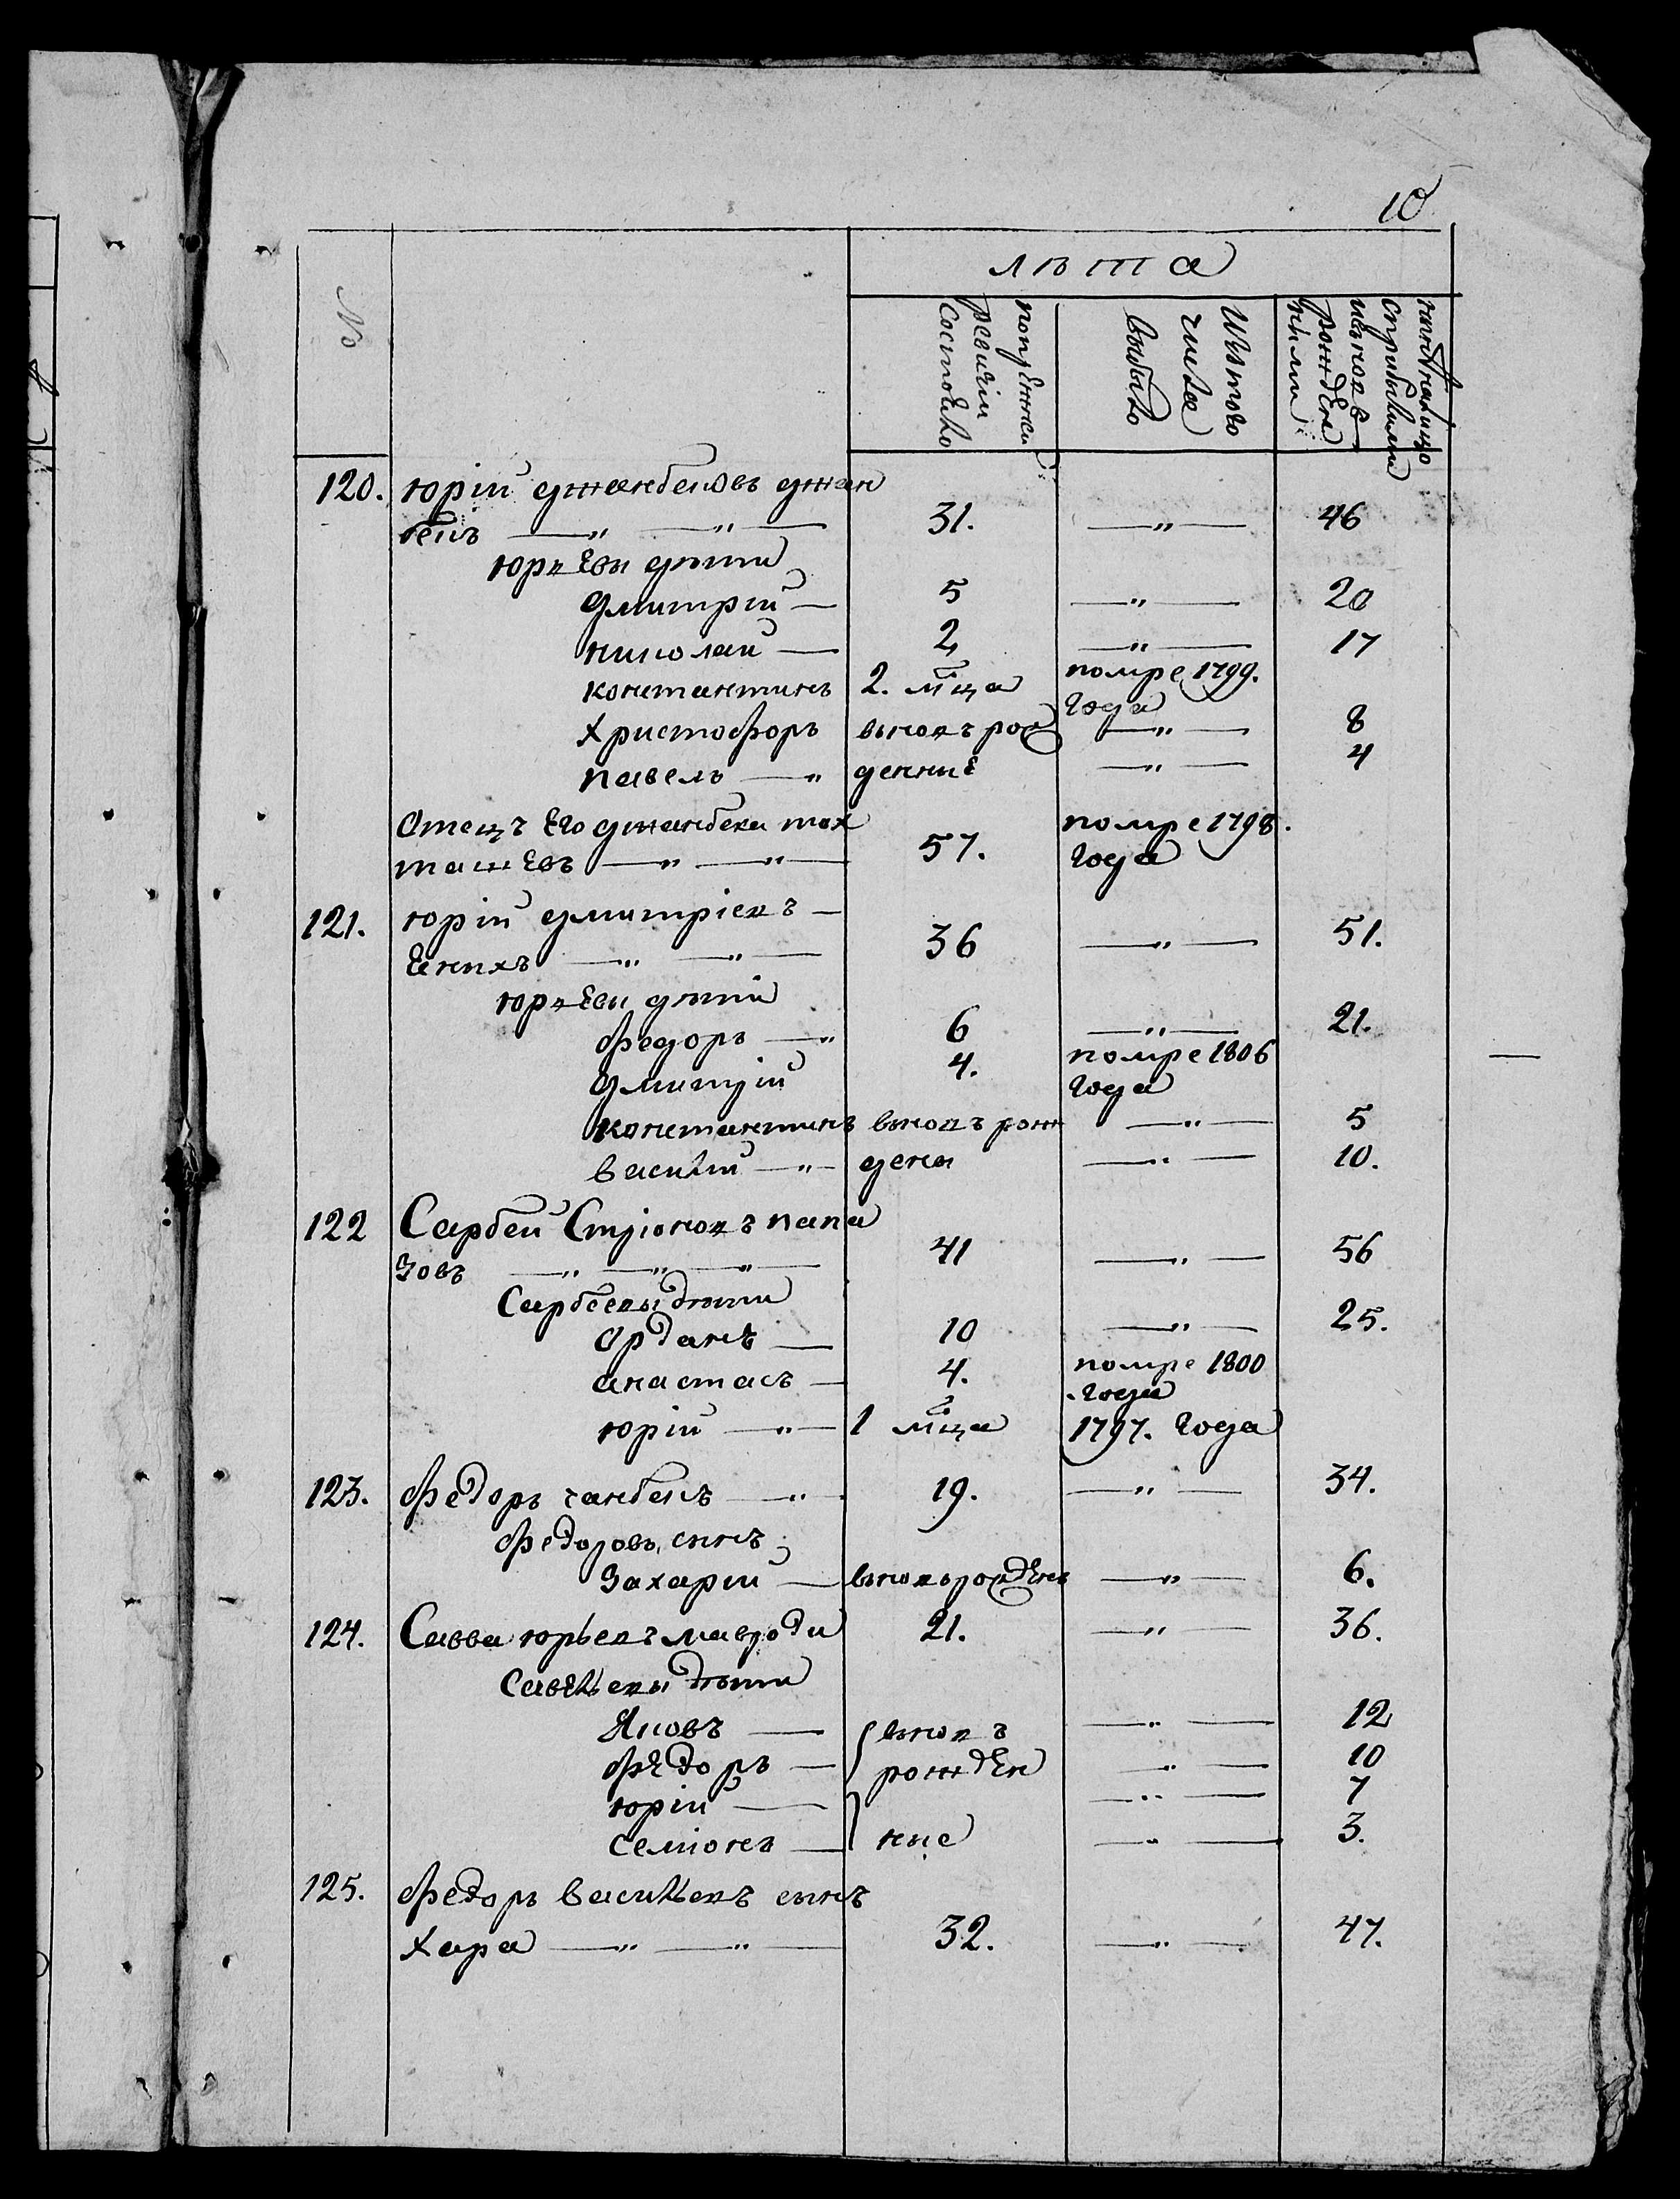 10
лѣта
№
по прежней ревизіи состояло
Изъ того числа выбыло
нынѣ на лицо съ прибылыми и вновь рожденными
120. юрій джанбековъ джан
бекъ —„— —„— 31. —„— 46
юрьевы дѣти
дмитрій — 5 —„— 20
николай — 2 —„— 17
константинъ 2. мца помре 1799.
года
Христофоръ вновь рож —„— 8
павелъ —„ денные —„— 4
Отецъ Его джанбекъ тох помре 1798.
ташевъ —„— —„— 57. года
121. юрій дмитріевъ —
Енихъ —„— —„— 36 —„— 51.
юрьевы дѣти
федоръ —„ 6 —„— 21.
дмитрій 4. помре 1806
года
константинъ вновь рож —„— 5
василій —„— дены —„— 10.
122 Сарбей Стріоновъ папа
зовъ —„— —„— —„— 41 —„— 56
Сарбеевы дѣти
Орданъ — 10 —„— 25.
анастасъ — 4. помре 1800
года
юрій —„— 1 мца 1797. года
123. федоръ чанбекъ —„— 19. —„— 34.
федоровъ сынъ
Захарій — вновь рожденъ —„— 6.
124. Савва юрьевъ мавроди 21. —„— 36.
Савельевы дѣти
Яковъ — вновь —„— 12
федоръ — рожден —„— 10
юрій — —„— 7
семіонъ — ные —„— 3.
125. федоръ васильевъ сынъ
Хара —„— —„— 32. —„— 47.